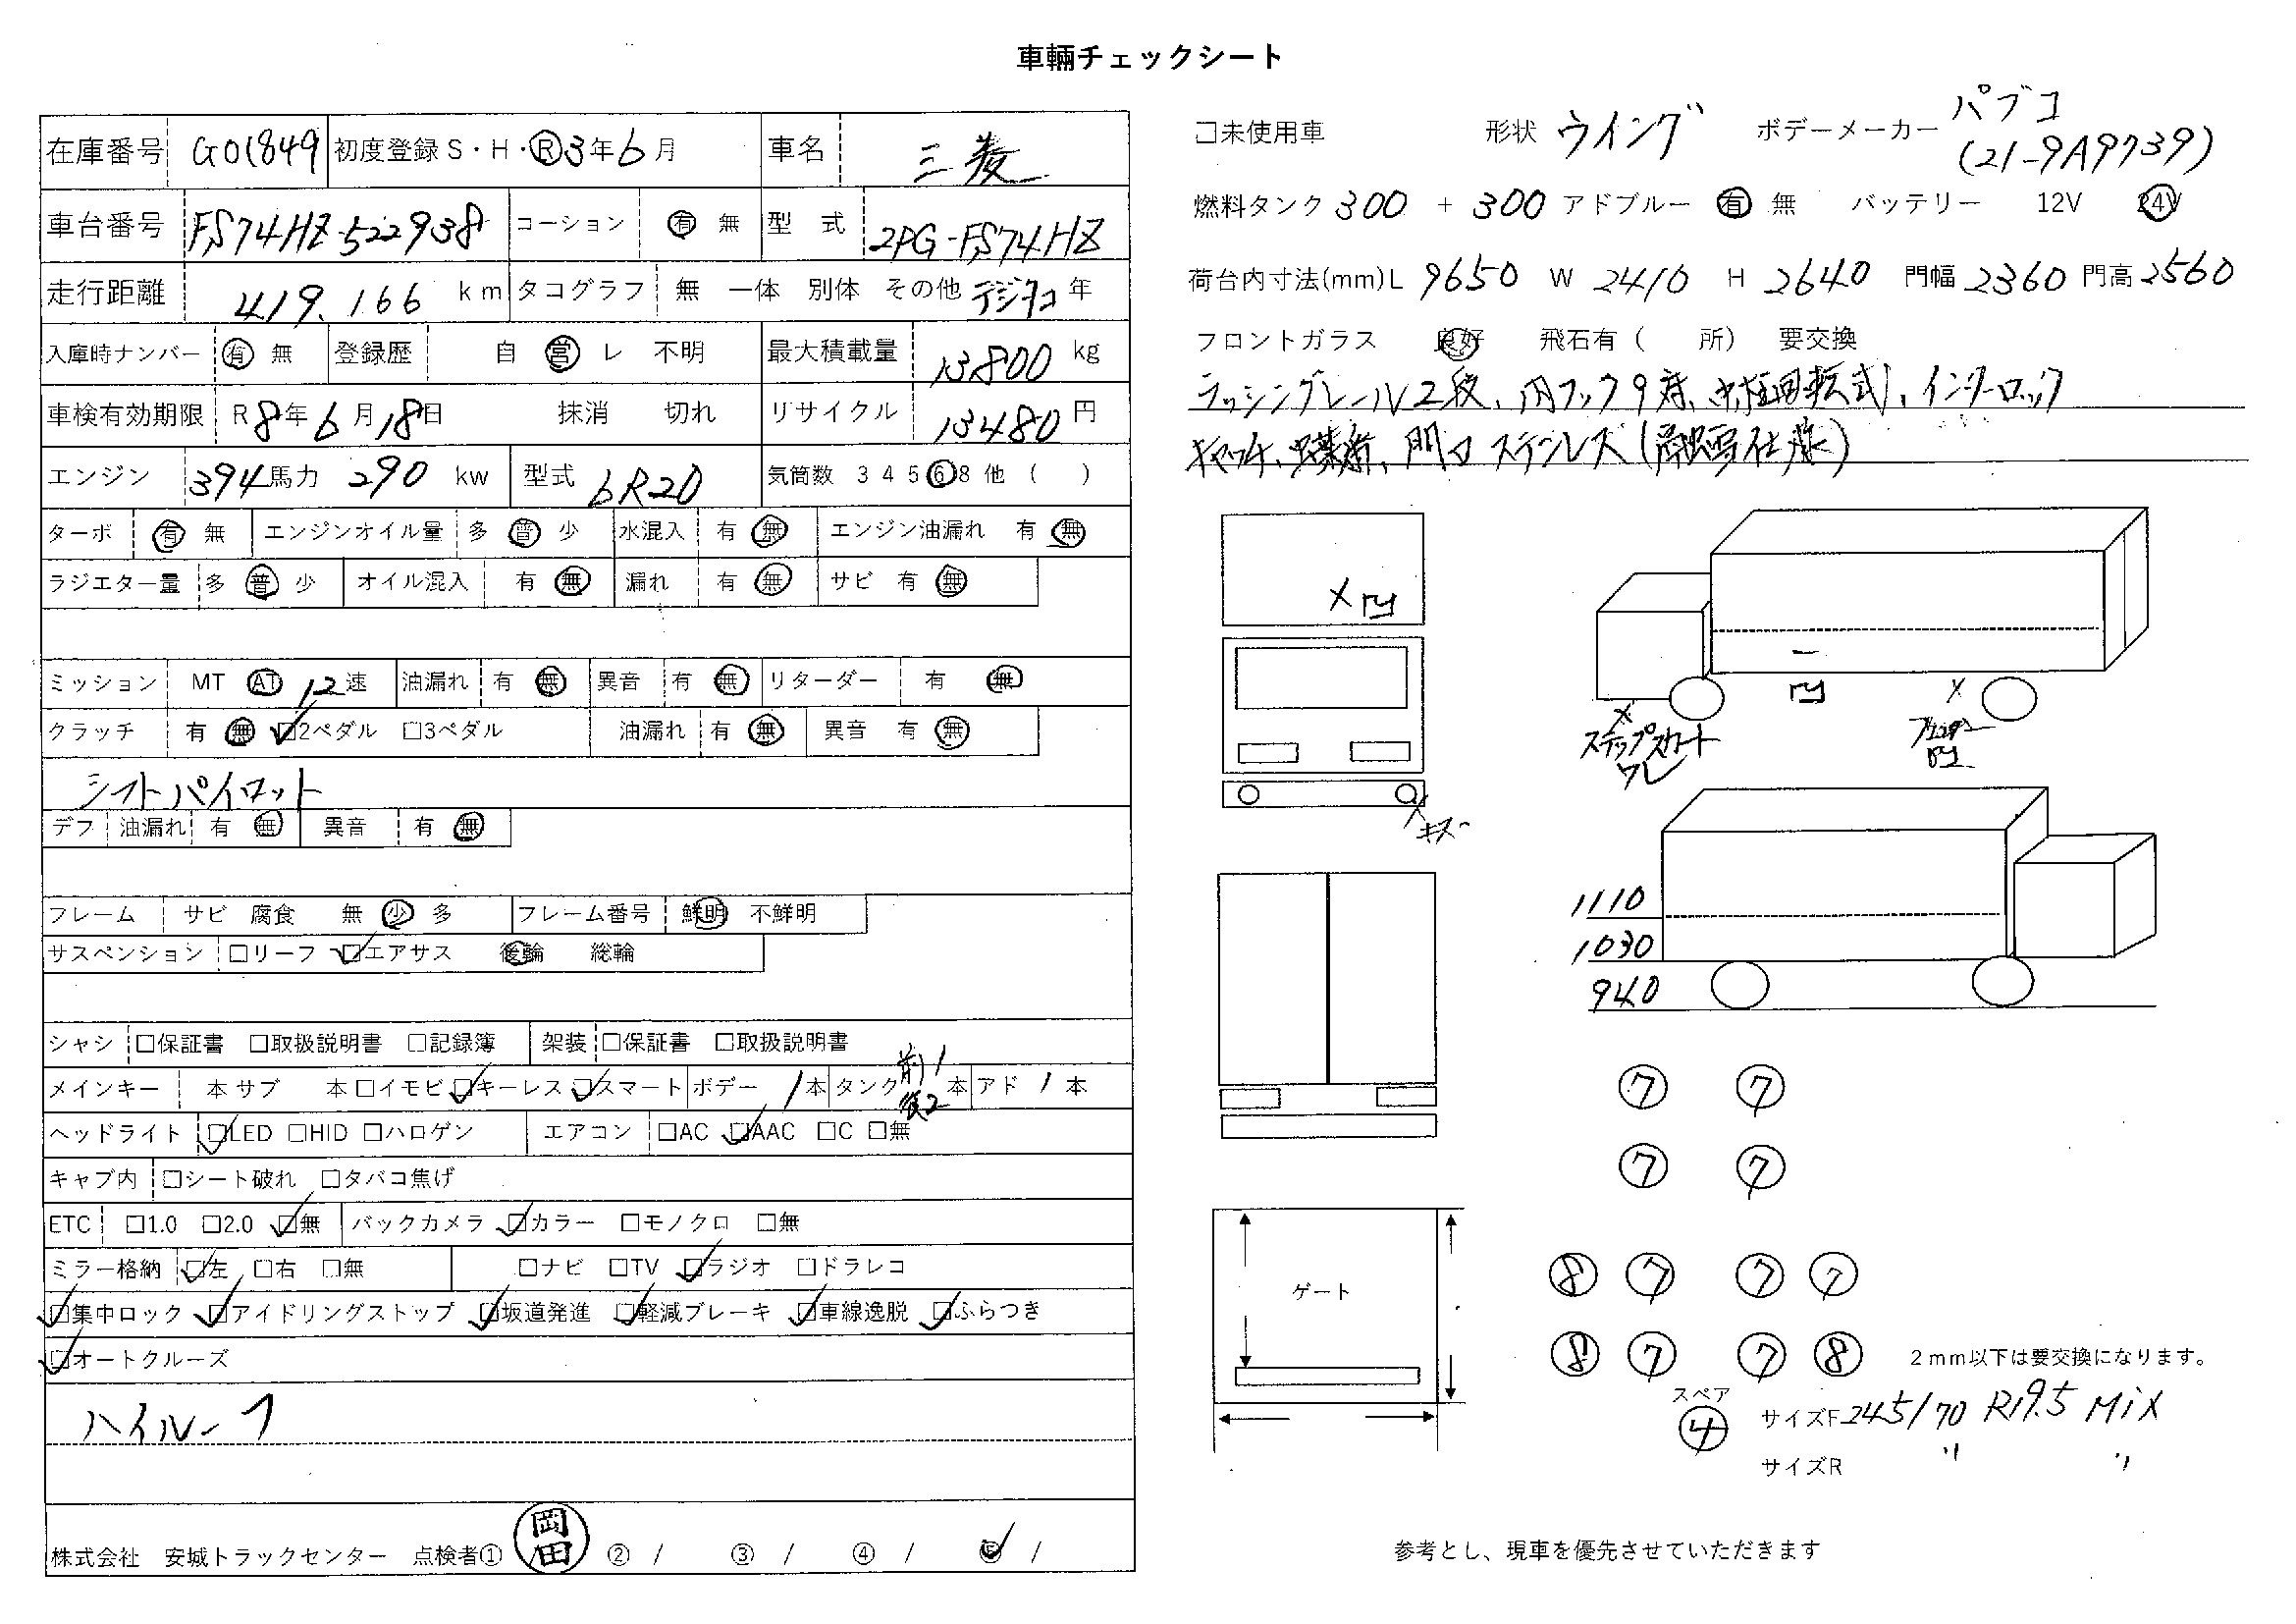 車輛チェックシート
在庫番号 G01849 初度登録 S・H・R 3年6月 車名 三菱
車台番号 FS74HZ-522938 コーション 有 無 型 式 2PG-FS74HZ
走行距離 419.166 km タコグラフ 無 一体 別体 その他 デジタコ 年
入庫時ナンバー 有 無 登録歴 自 営 レ 不明 最大積載量 13800 kg
車検有効期限 R8年6月18日 抹消 切れ リサイクル 13480 円
エンジン 394馬力 290 kw 型式 6R20 気筒数 3 4 5 6 8 他 ( )
ターボ 有 無 エンジンオイル量 多 普 少 水混入 有 無 エンジン油漏れ 有 無
ラジエター量 多 普 少 オイル混入 有 無 漏れ 有 無 サビ 有 無
ミッション MT AT 12速 油漏れ 有 無 異音 有 無 リターダー 有 無
クラッチ 有 無 ☑2ペダル □3ペダル 油漏れ 有 無 異音 有 無
シフトパイロット
デフ 油漏れ 有 無 異音 有 無
フレーム サビ 腐食 無 少 多 フレーム番号 鮮明 不鮮明
サスペンション □リーフ ☑エアサス 後輪 総輪
シャシ □保証書 □取扱説明書 □記録簿 架装 □保証書 □取扱説明書
メインキー 本 サブ 本 □イモビ ☑キーレス ☑スマート ボデー 1本 タンク 前1 後2 本 アド 1 本
ヘッドライト ☑LED □HID □ハロゲン エアコン □AC ☑AAC □C □無
キャブ内 □シート破れ □タバコ焦げ
ETC □1.0 □2.0 ☑無 バックカメラ ☑カラー □モノクロ □無
ミラー格納 ☑左 □右 □無 □ナビ □TV ☑ラジオ □ドラレコ
☑集中ロック ☑アイドリングストップ ☑坂道発進 ☑軽減ブレーキ ☑車線逸脱 ☑ふらつき
☑オートクルーズ
ハイルーフ
株式会社 安城トラックセンター 点検者① 岡田 ② / ③ / ④ / ⑤ /
□未使用車 形状 ウイング ボデーメーカー パブコ
(21-9A9739)
燃料タンク 300 + 300 アドブルー 有 無 バッテリー 12V 24V
荷台内寸法(mm)L 9650 W 2410 H 2640 門幅 2360 門高 2560
フロントガラス 良好 飛石有 ( 所) 要交換
ラッシングレール2段、内フック9対、中柱回転式、インターロック
門口ステンレス
X 凹
X
ステップスカート
ワレ
凹
X
凹
X キズ
1110
1030
940
⑦ ⑦
⑦ ⑦
⑧ ⑦ ⑦ ⑦
⑧ ⑦ ⑦ ⑧
2mm以下は要交換になります。
ゲート
スペア
④
サイズF 245/70 R19.5 Mix
サイズR 〃 〃
参考とし、現車を優先させていただきます